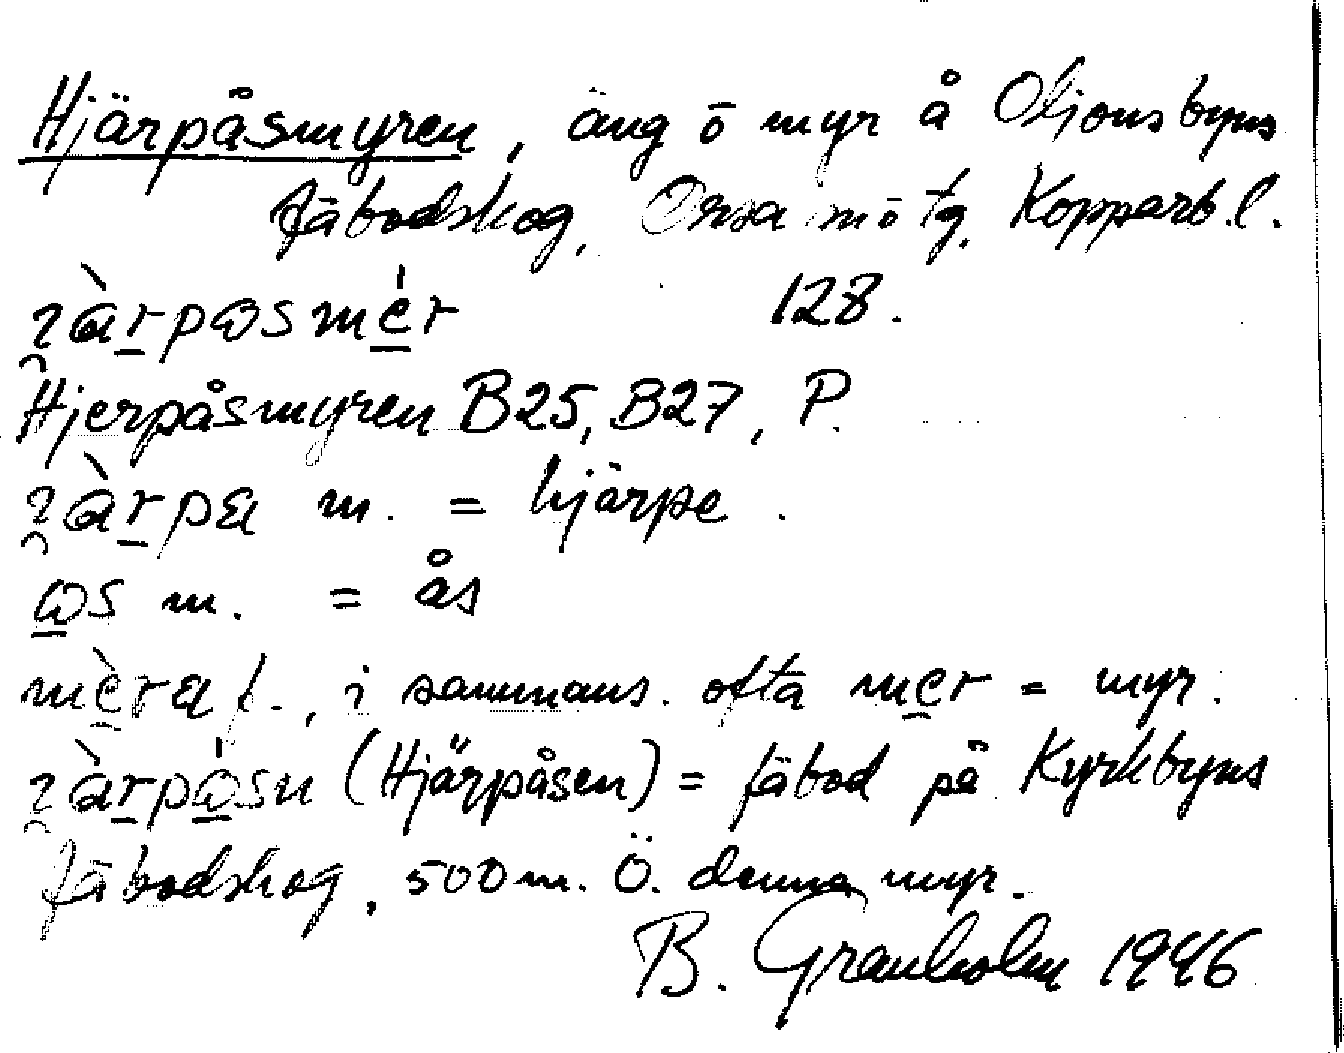 Hjärpåsmyren, äng ō myr å Oljonsbyns
fäbodskog, Orsa sn ō tg, Kopparb. l.
128.
Hjerpåsmyren B25, B27, P.
m. = hjärpe.
ɷs m. = ås
f., i sammans. ofta = myr.
(Hjärpåsen) = fäbod på Kyrkbyns
fäbodskog, 500 m. Ö. denna myr.
B. Granholm 1946